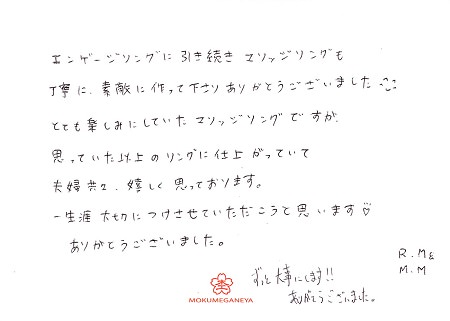 エンゲージリングに引き続きマリッジリングも
丁寧に、素敵に作って下さりありがとうございました^^
とても楽しみにしていたマリッジリングですが、
思っていた以上のリングに仕上がっていて
夫婦共々、嬉しく思っております。
一生涯大切につけさせていただこうと思います♡
ありがとうございました。
R.M&
M.M
ずっと大事にします!!
ありがとうございました。
MOKUMEGANEYA